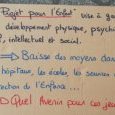 "Projet pour l'Enfant" vise à g
développement physique, psych
, intellectuel et social.
⇒ Baisse des moyens dans
hôpitaux, les écoles, les
ection de l'Enfance...
⇒ Quel Avenir pour ces jeu